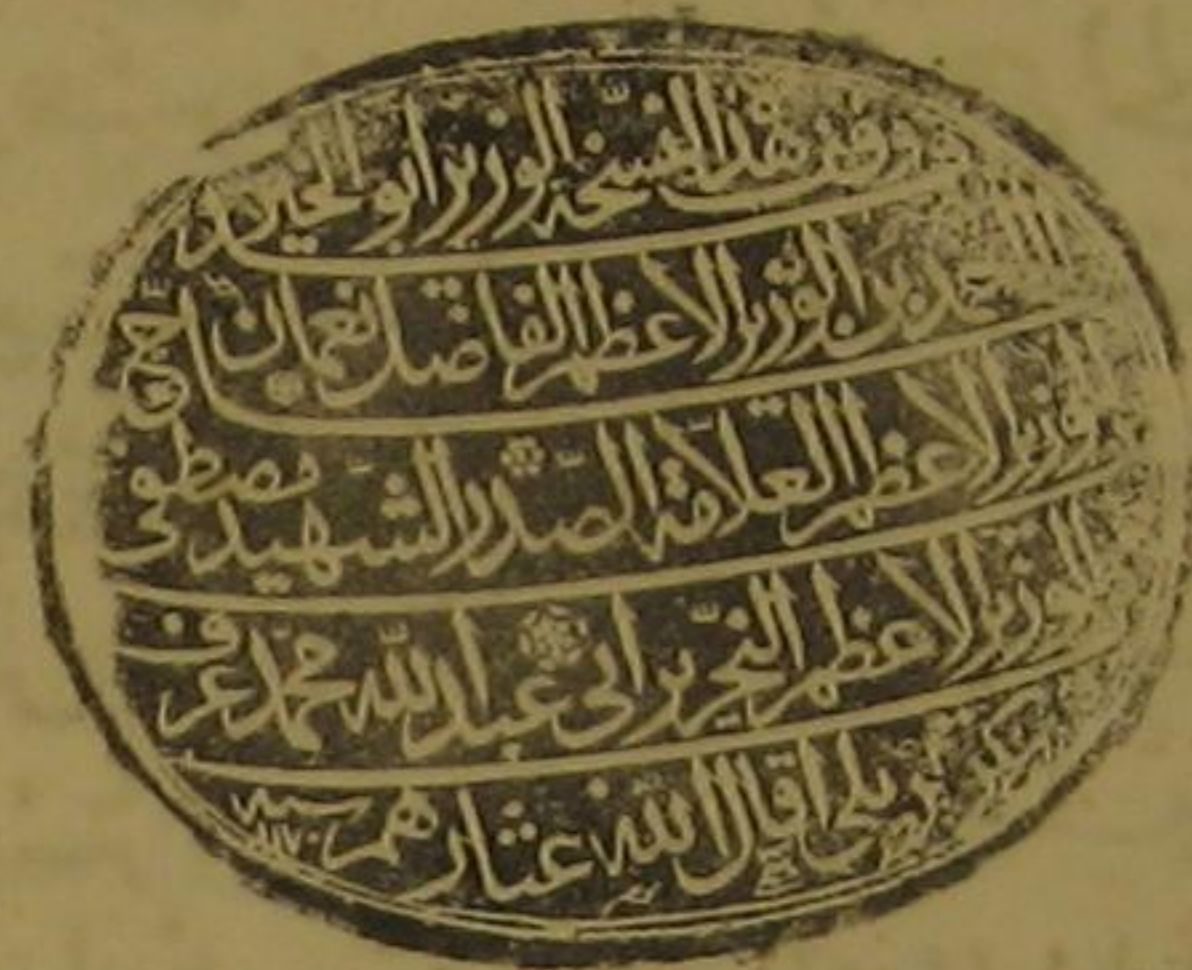 وقف هذه النسخة الوزير ابو الخير
احمد بن الوزير الاعظم الفاضل نعمان
الوزير الاعظم العلامة الصدر الشهيد مصطفى
الوزير الاعظم النحرير ابى عبد الله محمد عرف
بكوبريلى اقال الله عثارهم سنه